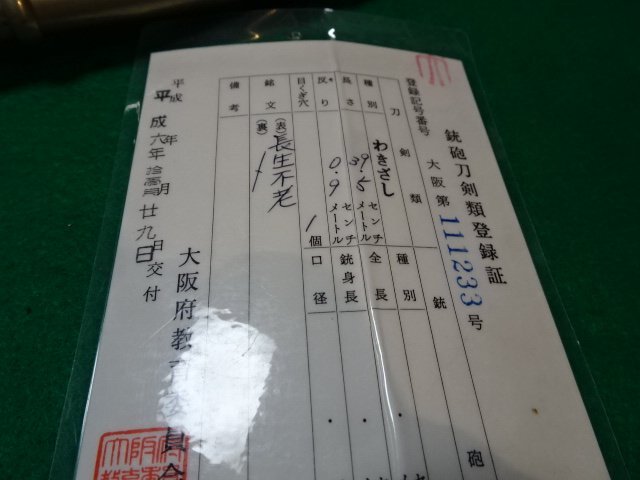 銃砲刀剣類登録証
登録記号番号
大阪第
111233
号
刀剣類
銃砲
種別
わきざし
種別
長さ
39.5
センチメートル
全長
反り
0.9
センチメートル
銃身長
目くぎ穴
1個
口径
銘文
(表)
長生不老
(裏)
備考
平成
年
月
日
交付
平成六年
廿九日
大阪府教
員会